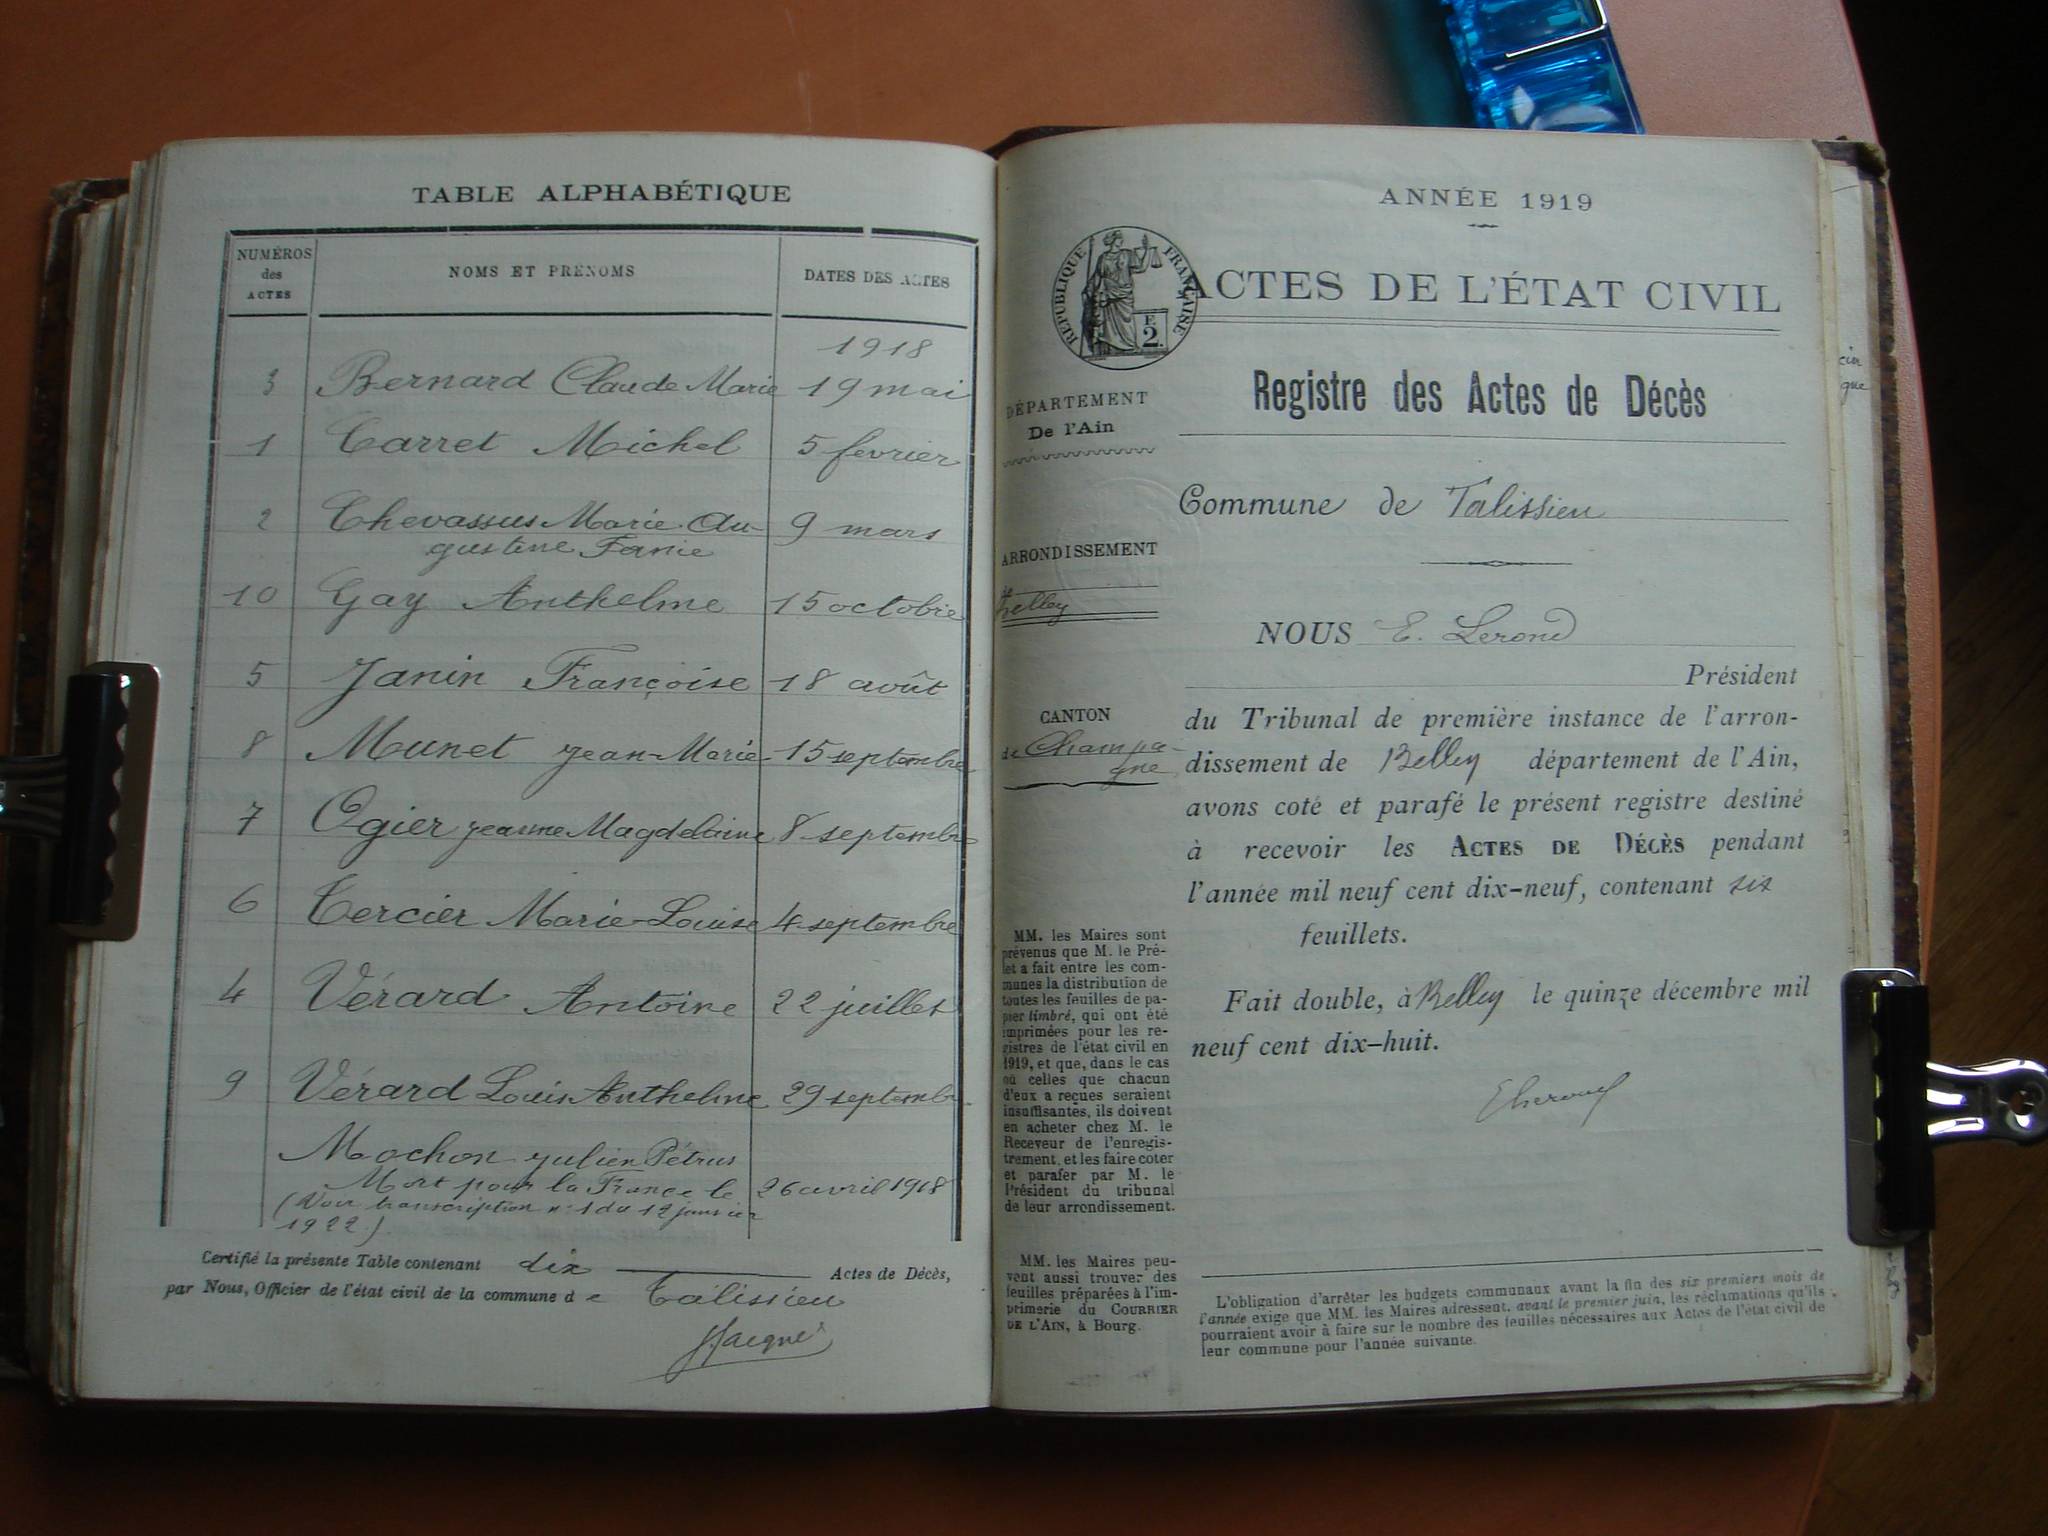 TABLE ALPHABÉTIQUE
NUMÉROS des ACTES
NOMS ET PRÉNOMS
DATES DES ACTES
1918
3 Bernard Claude Marie 19 mai
1 Carret Michel 5 fevrier
2 Chevassus Marie Au- 9 mars
gustine Fanie
10 Gay Anthelme 15 octobre
5 Janin Françoise 18 août
8 Munet Jean-Marie 15 septembre
7 Ogier Jeanne Magdelaine 8 septembre
6 Tercier Marie-Louise 4 septembre
4 Vérard Antoine 22 juillet
9 Vérard Louis Anthelme 29 septembre
Mochon Julien Pétrus
Mort pour la France le 26 avril 1918
(Voir transcription n° 1 du 12 janvier
1922)
Certifié la présente Table contenant dix Actes de Décès,
par Nous, Officier de l'état civil de la commune de Talissieu
ANNÉE 1919
RÉPUBLIQUE FRANÇAISE
F.
2.
ACTES DE L'ÉTAT CIVIL
Registre des Actes de Décès
DÉPARTEMENT
De l'Ain
ARRONDISSEMENT
de
Belley
CANTON
de Champa-
gne
Commune de Talissieu
NOUS E. Lerond
Président
du Tribunal de première instance de l'arron-
dissement de Belley département de l'Ain,
avons coté et parafé le présent registre destiné
à recevoir les ACTES DE DÉCÈS pendant
l'année mil neuf cent dix-neuf, contenant six
feuillets.
Fait double, à Belley le quinze décembre mil
neuf cent dix-huit.
MM. les Maires sont
prévenus que M. le Pré-
fet a fait entre les com-
munes la distribution de
toutes les feuilles de pa-
pier timbré, qui ont été
imprimées pour les re-
gistres de l'état civil en
1919, et que, dans le cas
où celles que chacun
d'eux a reçues seraient
insuffisantes, ils doivent
en acheter chez M. le
Receveur de l'enregis-
trement, et les faire coter
et parafer par M. le
Président du tribunal
de leur arrondissement.
MM. les Maires peu-
vent aussi trouver des
feuilles préparées à l'im-
primerie du COURRIER
DE L'AIN, à Bourg.
L'obligation d'arrêter les budgets communaux avant la fin des six premiers mois de
l'année exige que MM. les Maires adressent, avant le premier juin, les réclamations qu'ils
pourraient avoir à faire sur le nombre des feuilles nécessaires aux Actes de l'état civil de
leur commune pour l'année suivante.